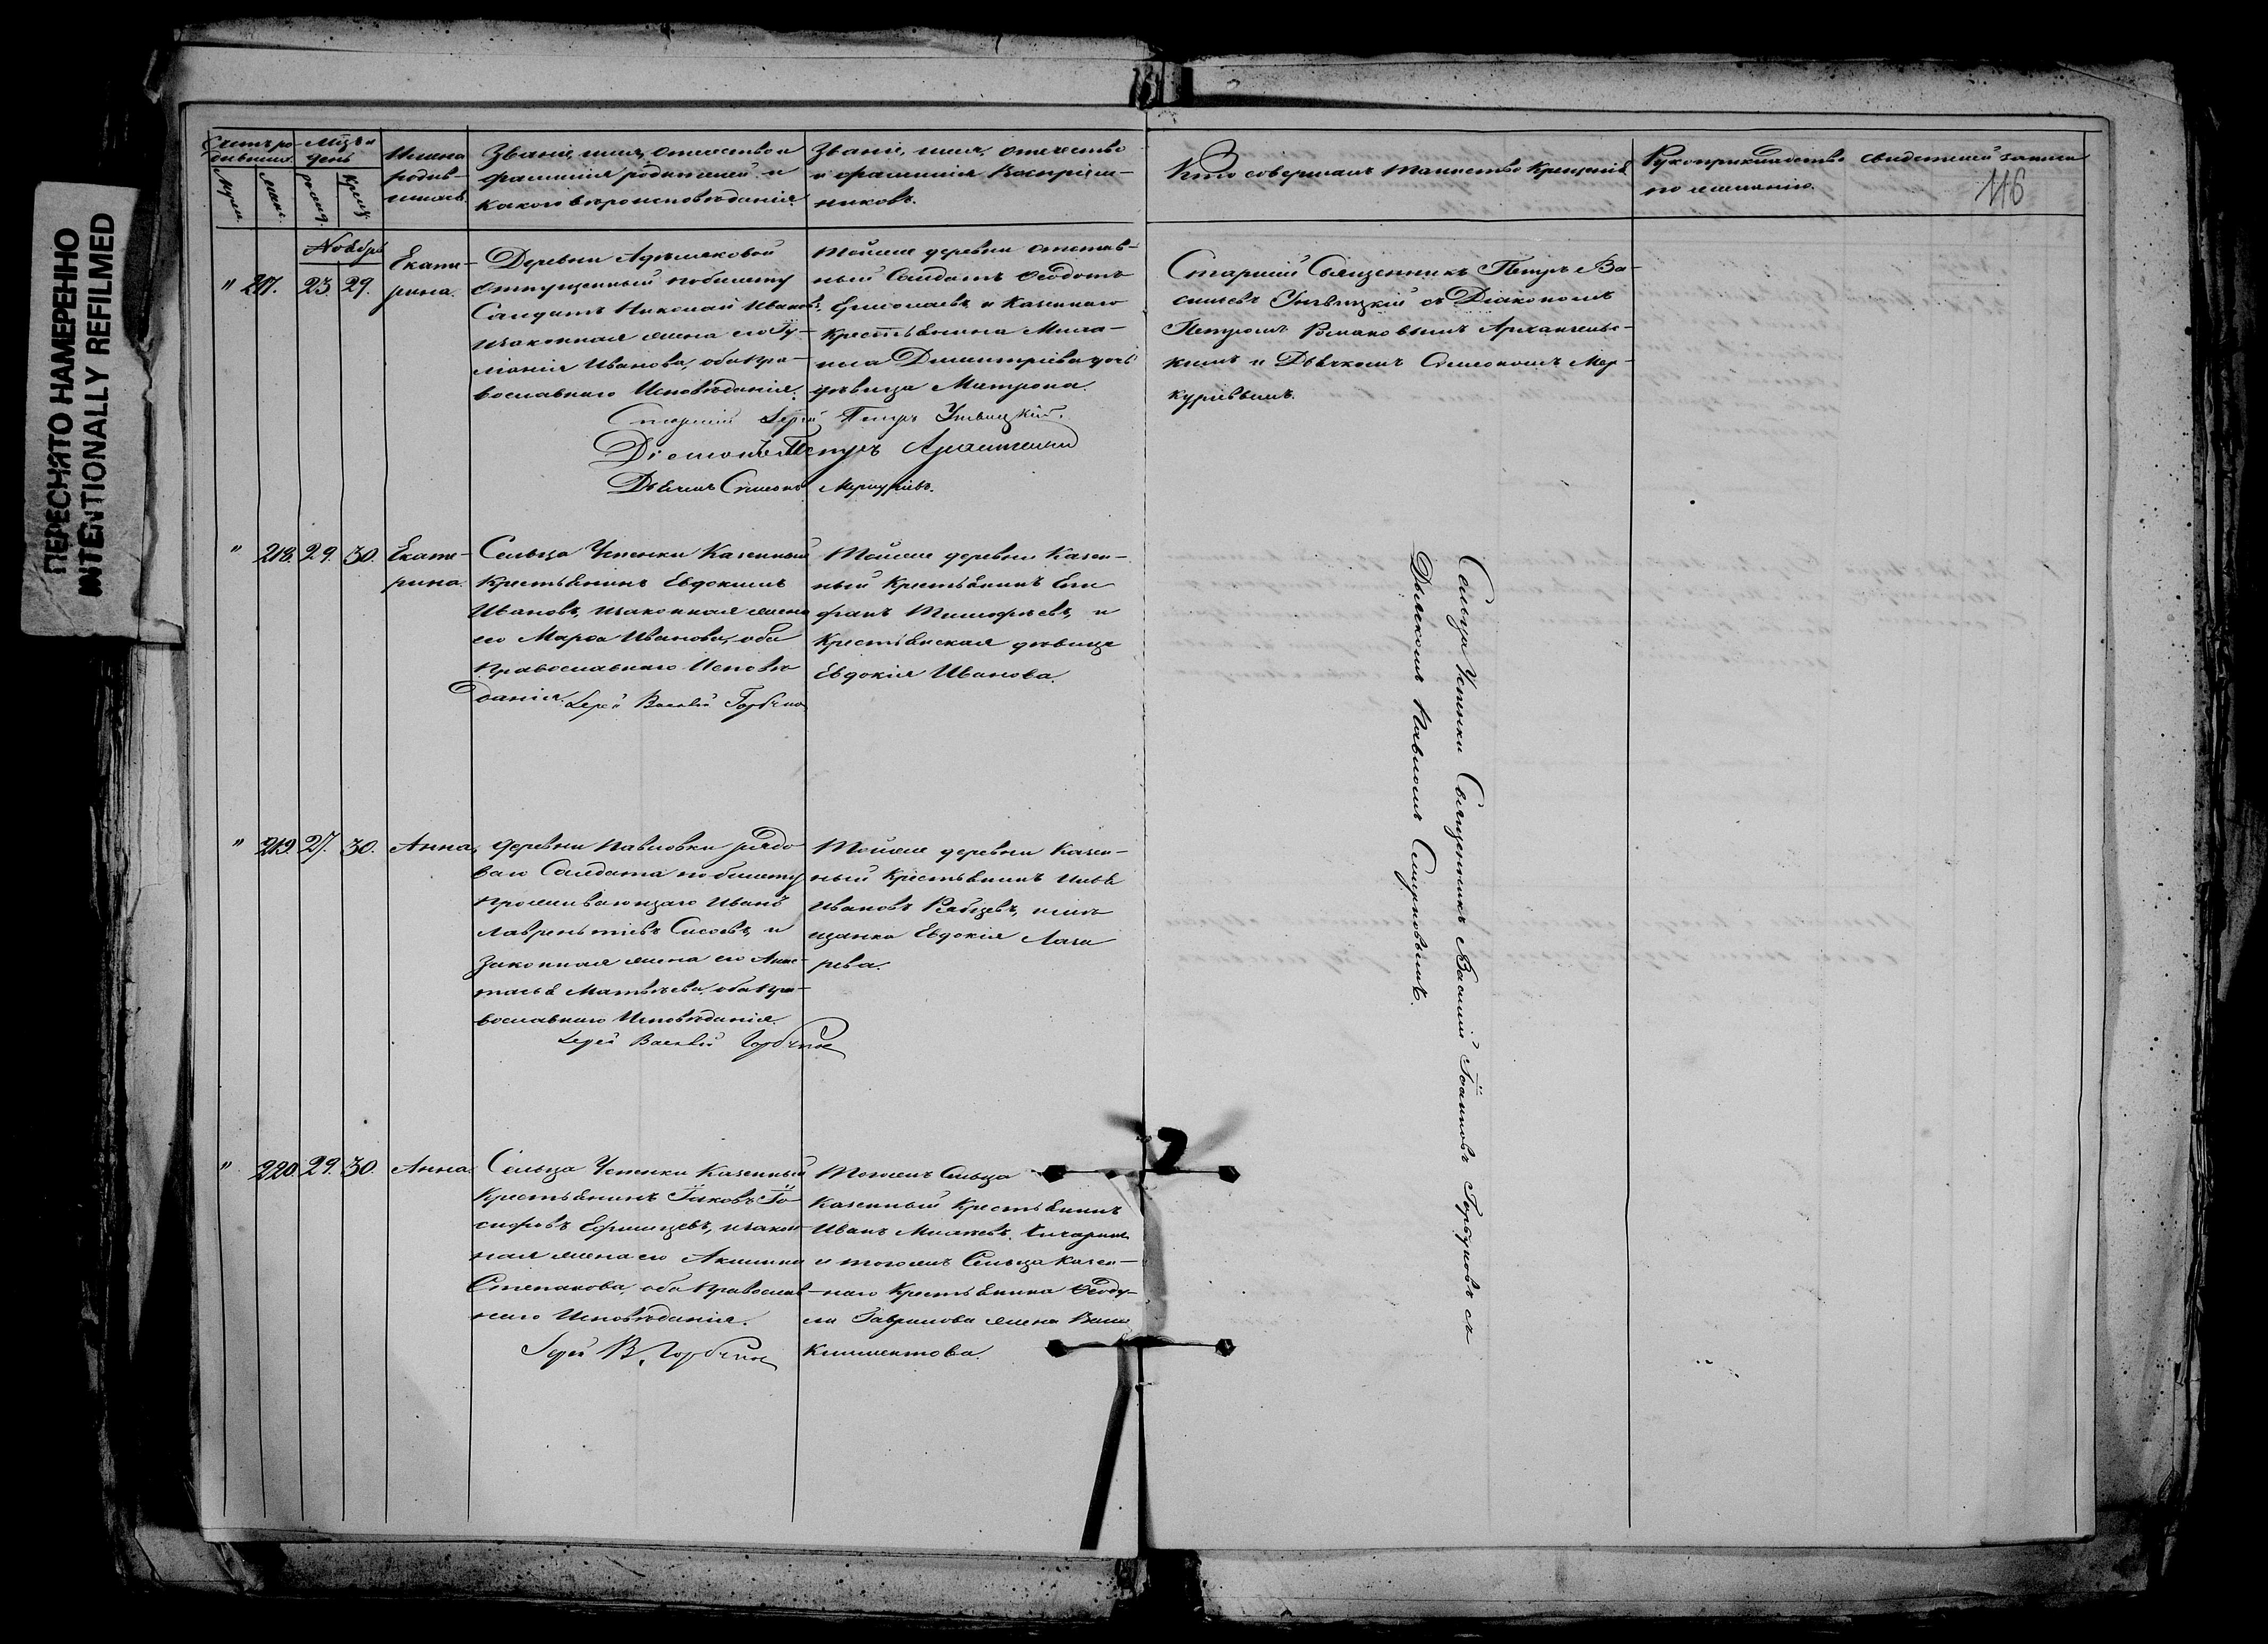 ПЕРЕСНЯТО НАМЕРЕННО
INTENTIONALLY REFILMED
116
Счетъ ро-
дивших.
Муж.
Женс.
Мѣс. и
день
рожд.
крещ.
Имена
родив-
шихся.
Званіе, имя, отчество и
фамилія родителей и
какого вѣроисповѣданія.
Званіе, имя, отчество
и фамилія Воспріем-
никовъ.
Кто совершалъ таинство Крещенія.
Рукоприкладство свидетелей записи
по желанію.
Ноября
" 217. 23. 29.
Екате-
рина.
Деревни
отпущенный по билету
Солдатъ Николай Иванов.
и законная жена его Іу-
ліанія Иванова, оба пра-
вославнаго Исповѣданія.
Тойже деревни отстав-
ный Солдатъ Ѳеодотъ
Ермолаевъ и Казеннаго
Крестьянина Миха-
ила Димитріева дочь
дѣвица Матрона.
Старшій Священникъ Петръ Ва-
сильевъ съ Діакономъ
Петромъ Романовымъ Архангельс-
кимъ и Дьячкомъ Симеономъ Мер-
куріевымъ.
Старшій Іерей Петръ
Діаконъ Петръ
Дьячекъ Симеонъ Меркуріевъ.
" 218. 29. 30.
Екате-
рина.
Сельца Устинки Казенный
Крестьянинъ Евдокимъ
Ивановъ, и законная жена
его Марѳа Иванова, оба
Православнаго Исповѣ
данія. Іерей Василій Горбуновъ
Тойже деревни Казен-
ный Крестьянинъ Епи
фанъ Тимофѣевъ, и
Крестьянская дѣвица
Евдокія Иванова.
Сельца Устинки Священникъ Василій Іоанновъ Горбуновъ съ
Дьячкомъ Павломъ Смирновымъ.
" 219. 27. 30. Анна.
деревни Павловки рядо
ваго Солдата по билету
проживающаго Иванъ
Лаврентіевъ Сысоевъ, и
законная жена его Анас-
тасья Матвѣева, оба пра-
вославнаго Исповѣданія.
Іерей Василій Горбуновъ
Тойже деревни Казен-
ный Крестьянинъ
Ивановъ Рябцевъ, и мѣ
щанка Евдокія Лаза
рева.
" 220. 29. 30. Анна.
Сельца Устинки Казенный
Крестьянинъ Іаковъ Іо
сифовъ Ефимцевъ, и закон
ная жена его Акилина
Степанова, оба православ
наго Исповѣданія.
Іерей В. Горбуновъ
Тогожъ Сельца
Казенный Крестьянинъ
Иванъ
и тогожъ Сельца Казен-
наго Крестьянина Ѳеоду-
ла Гаврилова жена
Климентова.